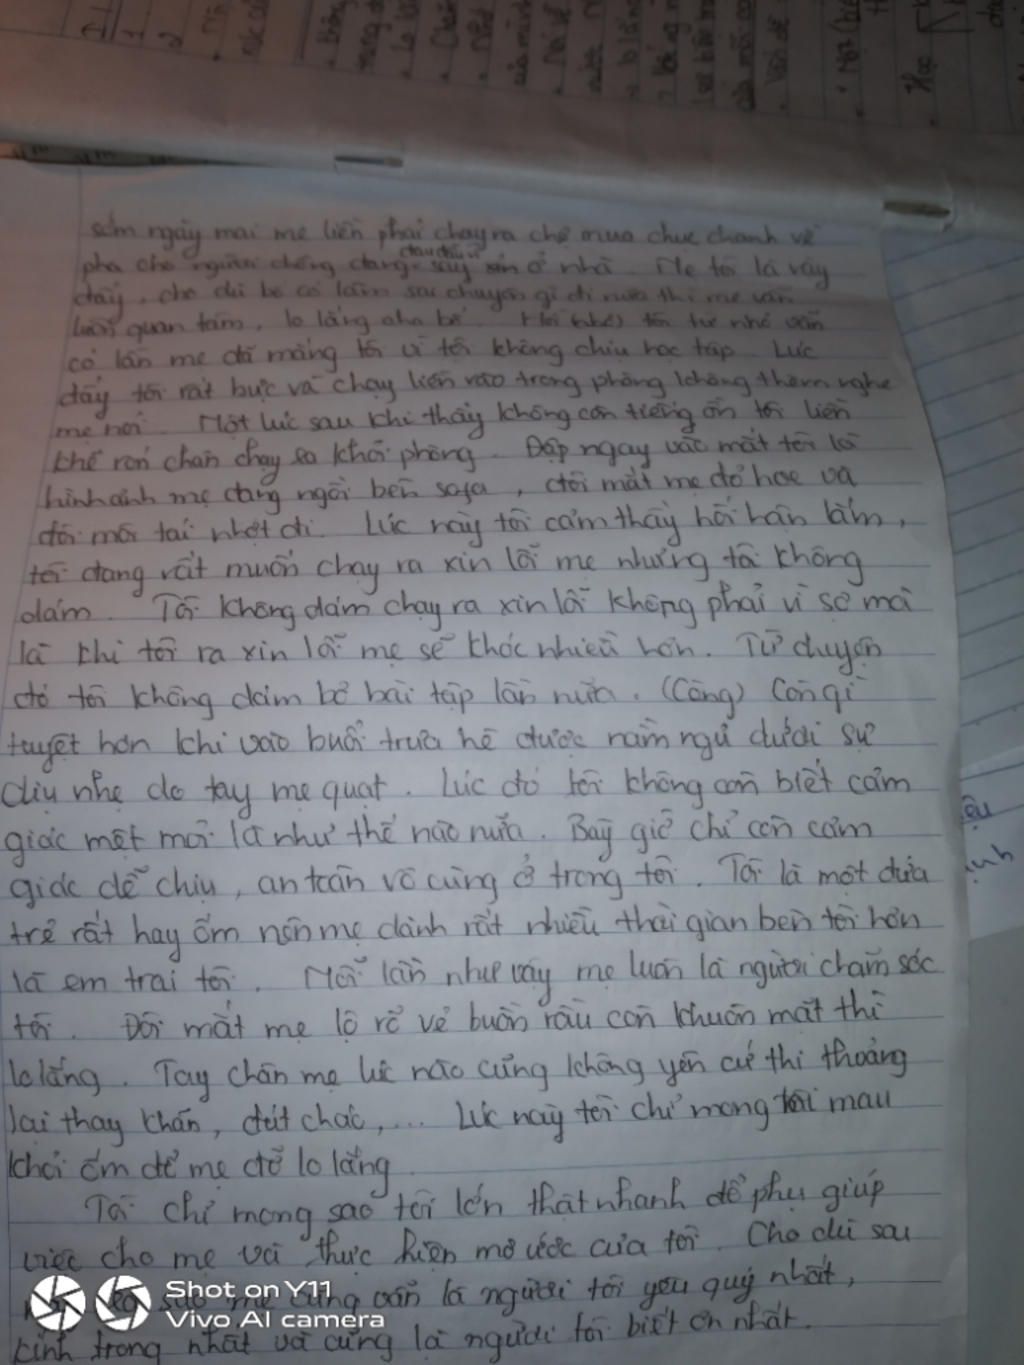 sớm ngày mai mẹ liền phải chạy ra chợ mua chục chanh về
pha cho người chồng đang say xỉn ở nhà. Mẹ tôi là vậy
đấy, cho dù bố có làm sai chuyện gì đi nữa thì mẹ vẫn
luôn quan tâm, lo lắng cho bố. tôi từ nhỏ vẫn
có lần mẹ đã mắng tôi vì tôi không chịu học tập. Lúc
đấy tôi rất bực và chạy liền vào trong phòng không thèm nghe
mẹ nói. Một lúc sau khi thấy không còn tiếng ồn tôi liền
khẽ rón chân chạy ra khỏi phòng. Đập ngay vào mắt tôi là
hình ảnh mẹ đang ngồi bên sofa, đôi mắt mẹ đỏ hoe và
đôi môi tái nhợt đi. Lúc này tôi cảm thấy hối hận lắm,
tôi đang rất muốn chạy ra xin lỗi mẹ nhưng tôi không
dám. Tôi không dám chạy ra xin lỗi không phải vì sợ mà
là khi tôi ra xin lỗi mẹ sẽ khóc nhiều hơn. Từ chuyện
đó tôi không dám bỏ bài tập lần nữa. (Càng) Còn gì
tuyệt hơn khi vào buổi trưa hè được nằm ngủ dưới sự
dịu nhẹ do tay mẹ quạt. Lúc đó tôi không còn biết cảm
giác mệt mỏi là như thế nào nữa. Bây giờ chỉ còn cảm
giác dễ chịu, an toàn vô cùng ở trong tôi. Tôi là một đứa
trẻ rất hay ốm nên mẹ dành rất nhiều thời gian bên tôi hơn
là em trai tôi. Mỗi lần như vậy mẹ luôn là người chăm sóc
tôi. Đôi mắt mẹ lộ rõ vẻ buồn rầu còn khuôn mặt thì
lo lắng. Tay chân mẹ lúc nào cũng không yên cứ thi thoảng
lại thay khăn, đút cháo,... Lúc này tôi chỉ mong tôi mau
khỏi ốm để mẹ đỡ lo lắng.
Tôi chỉ mong sao tôi lớn thật nhanh để phụ giúp
việc cho mẹ và thực hiện mơ ước của tôi. Cho dù sau
sao mẹ cũng vẫn là người tôi yêu quý nhất,
kính trọng nhất và cũng là người tôi biết ơn nhất.
Shot on Y11
Vivo AI camera